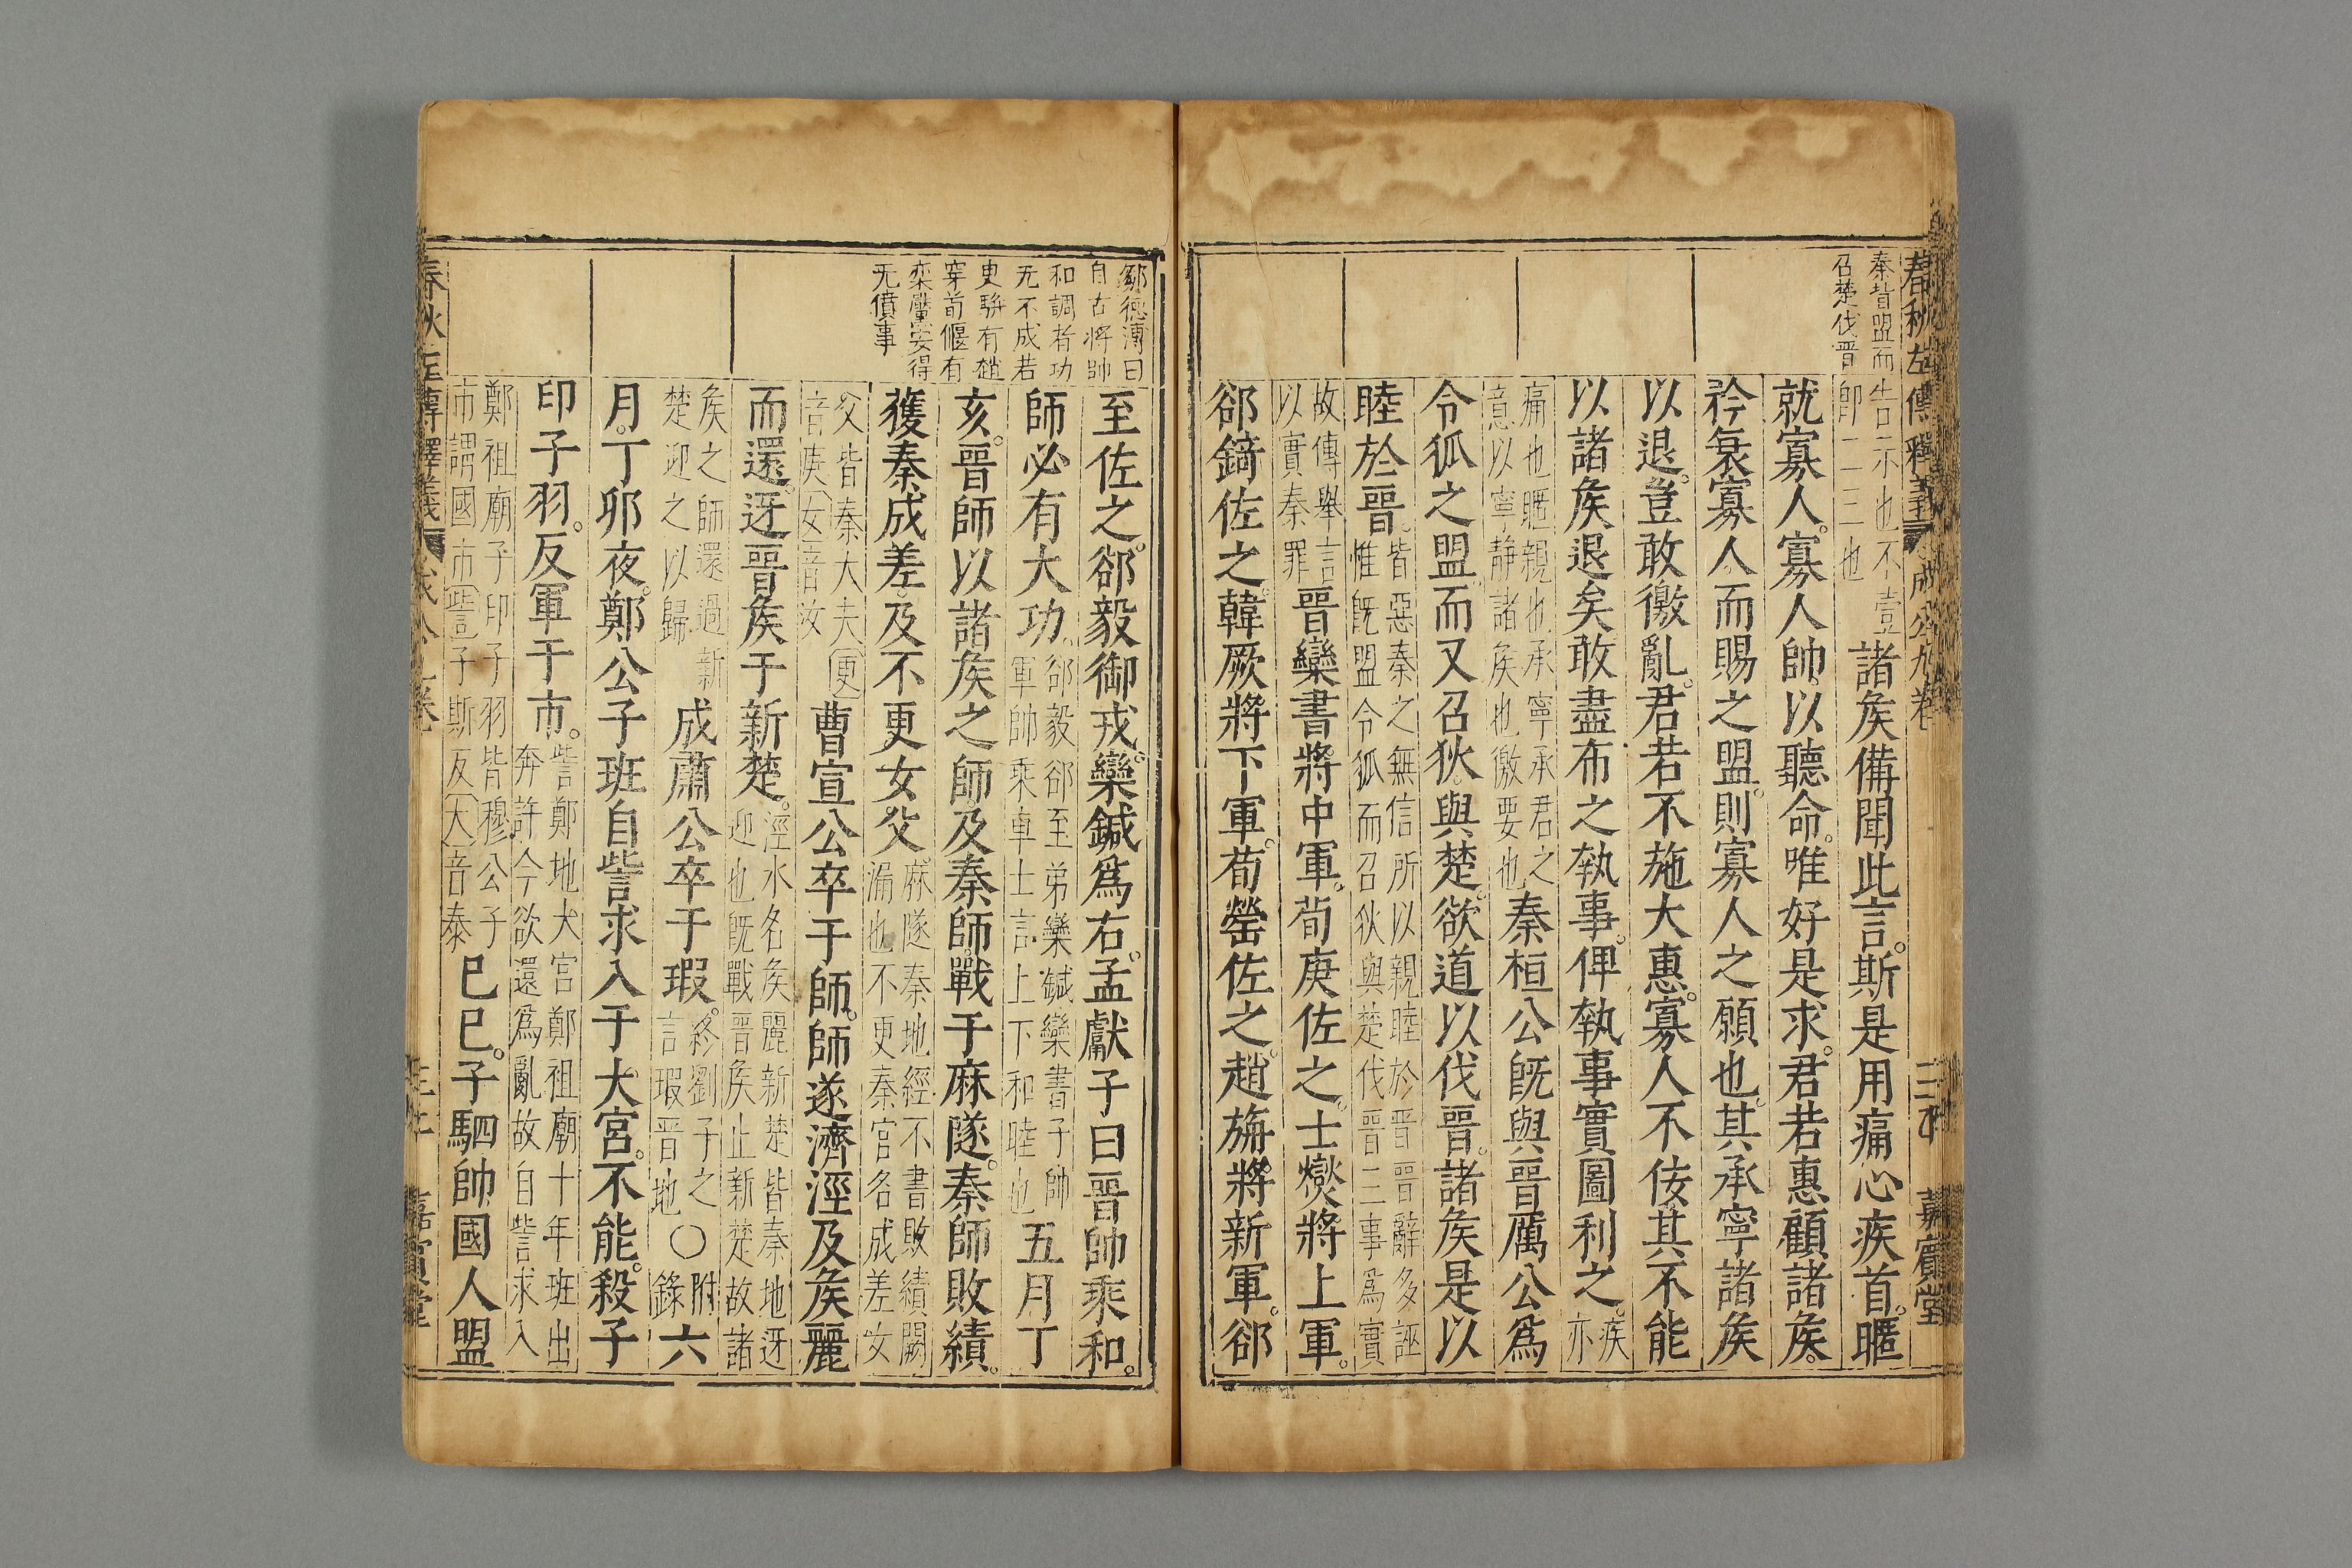 春秋左傳釋義 成公九卷 嘉賓堂
秦背盟而
召楚伐晉
告示也不壹
卽二三也
諸矦備聞此言。斯是用痛心疾首。暱
就寡人。寡人帥以聽命。唯好是求。君若惠顧諸矦。
矜哀寡人而賜之盟。則寡人之願也。其承寧諸矦
以退。豈敢徼亂。君若不施大惠。寡人不佞。其不能
以諸矦退矣。敢盡布之執事。俾執事實圖利之。
疾
亦
痛也暱親也承寧承君之
意以寧静諸矦也徼要也
秦桓公旣與晉厲公爲
令狐之盟。而又召狄與楚。欲道以伐晉。諸矦是以
睦於晉。
皆惡秦之無信所以親睦於晉晉辭多誣
惟旣盟令狐而召狄與楚伐晉二事爲實
故傳舉言
以實秦罪
晉欒書將中軍。荀庚佐之。士爕將上軍。
郤錡佐之。韓厥將下軍。荀罃佐之。趙旃將新軍。郤
鄒德溥曰
自古將帥
和調者功
无不成若
史駢有趙
穿荀偃有
欒黶安得
无僨事
至佐之。郤毅御戎。欒鍼爲右。孟獻子曰晉帥乘和。
師必有大功。
郤毅郤至弟欒鍼欒書子帥
軍帥乘車士言上下和睦也
五月丁
亥。晉師以諸矦之師及秦師戰于麻隧。秦師敗績。
獲秦成差。及不更女父。
麻隧秦地經不書敗績闕
漏也不更秦官名成差女
父皆秦大夫更
音庚女音汝
曹宣公卒于師。師遂濟涇及矦麗
而還。迓晉矦于新楚。
涇水名矦麗新楚皆秦地迓
迎也旣戰晉矦止新楚故諸
矦之師還過新
楚迎之以歸
成肅公卒于瑕。
終劉子之
言瑕晉地
○附
錄
六
月。丁卯夜。鄭公子班自訾求入于大宮。不能。殺子
印子羽。反軍于市。
訾鄭地大宮鄭祖廟十年班出
奔許今欲還爲亂故自訾求入
鄭祖廟子印子羽皆穆公子
市謂國市訾子斯反大音泰
已巳。子駟帥國人盟